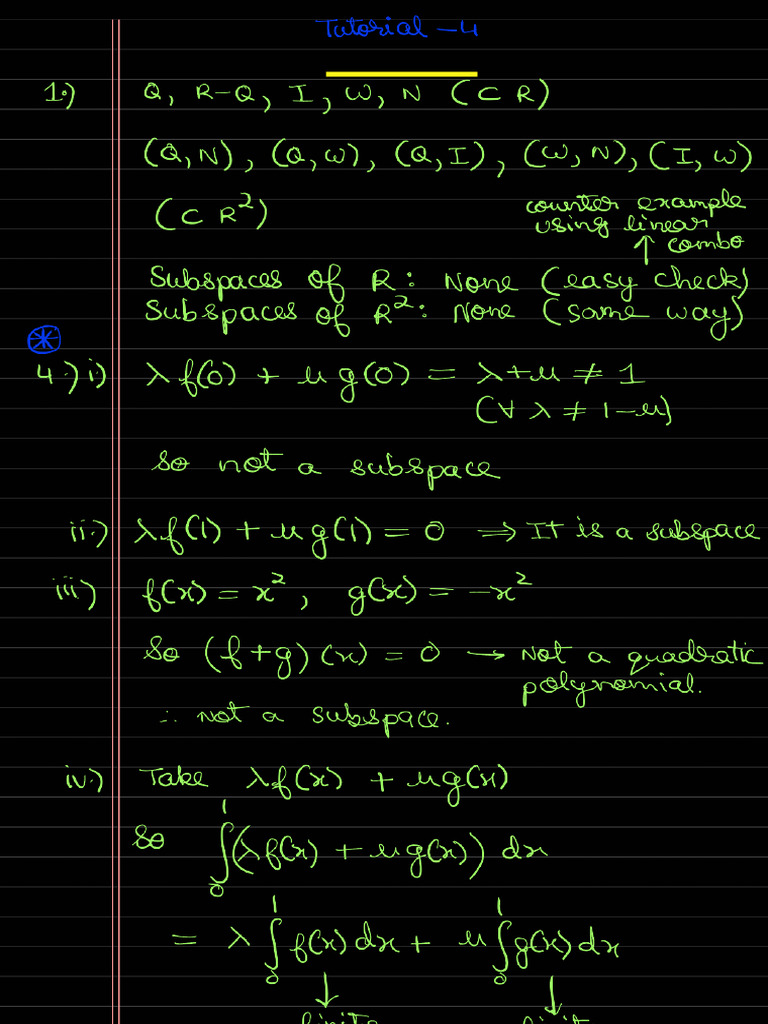 Tutorial - 4
1.) Q, R-Q, I, W, N (⊂ R)
(Q,N), (Q,W), (Q,I), (W,N), (I,W)
(⊂ R²)
counter example
using linear
↑ combo
Subspaces of R: None (easy check)
Subspaces of R²: None (same way)
*
4.) i) λf(0) + μg(0) = λ+μ ≠ 1
(∀ λ ≠ 1-μ)
So not a subspace
ii.) λf(1) + μg(1) = 0 ⇒ It is a subspace
iii) f(x) = x², g(x) = -x²
So (f+g)(x) = 0 → Not a quadratic
polynomial.
∴ Not a subspace.
iv.) Take λf(x) + μg(x)
So ∫₀¹ (λf(x) + μg(x)) dx
= λ ∫₀¹ f(x) dx + μ ∫₀¹ g(x) dx
↓ ↓